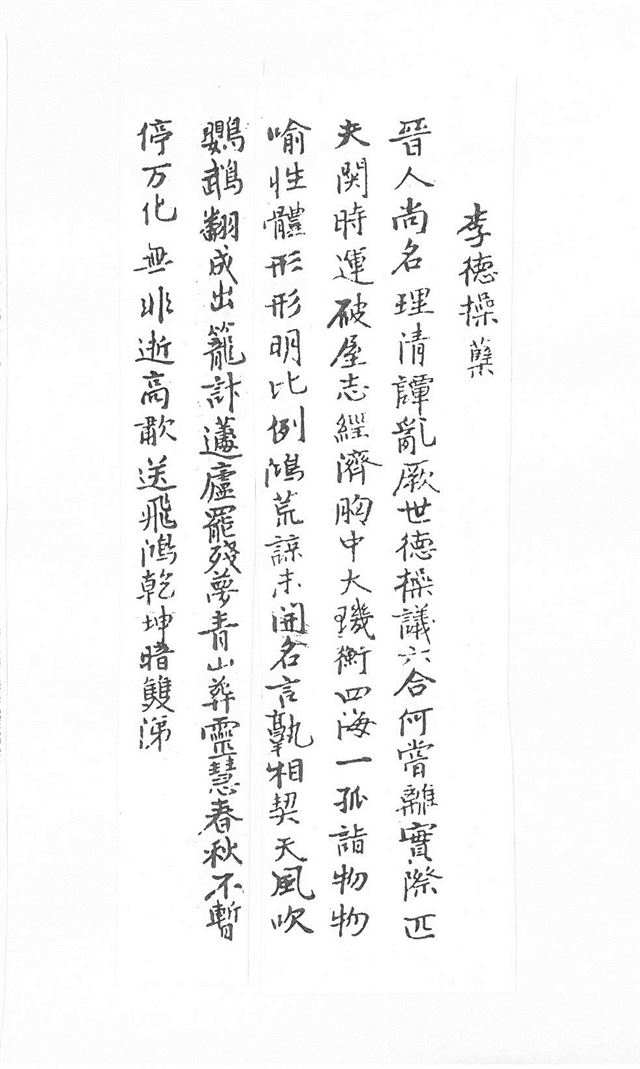 李德操蘖
晉人尚名理清譚亂厥世德操議六合何嘗離實際匹
夫関時運破屋志經濟胸中大璣衡四海一孤詣物物
喻性體形形明比例鴻荒諒未開名言孰相契天風吹
鸚鵡翻成出籠計蘧廬罷殘夢青山葬靈慧春秋不暫
停万化無非逝高歌送飛鴻乾坤暗雙涕